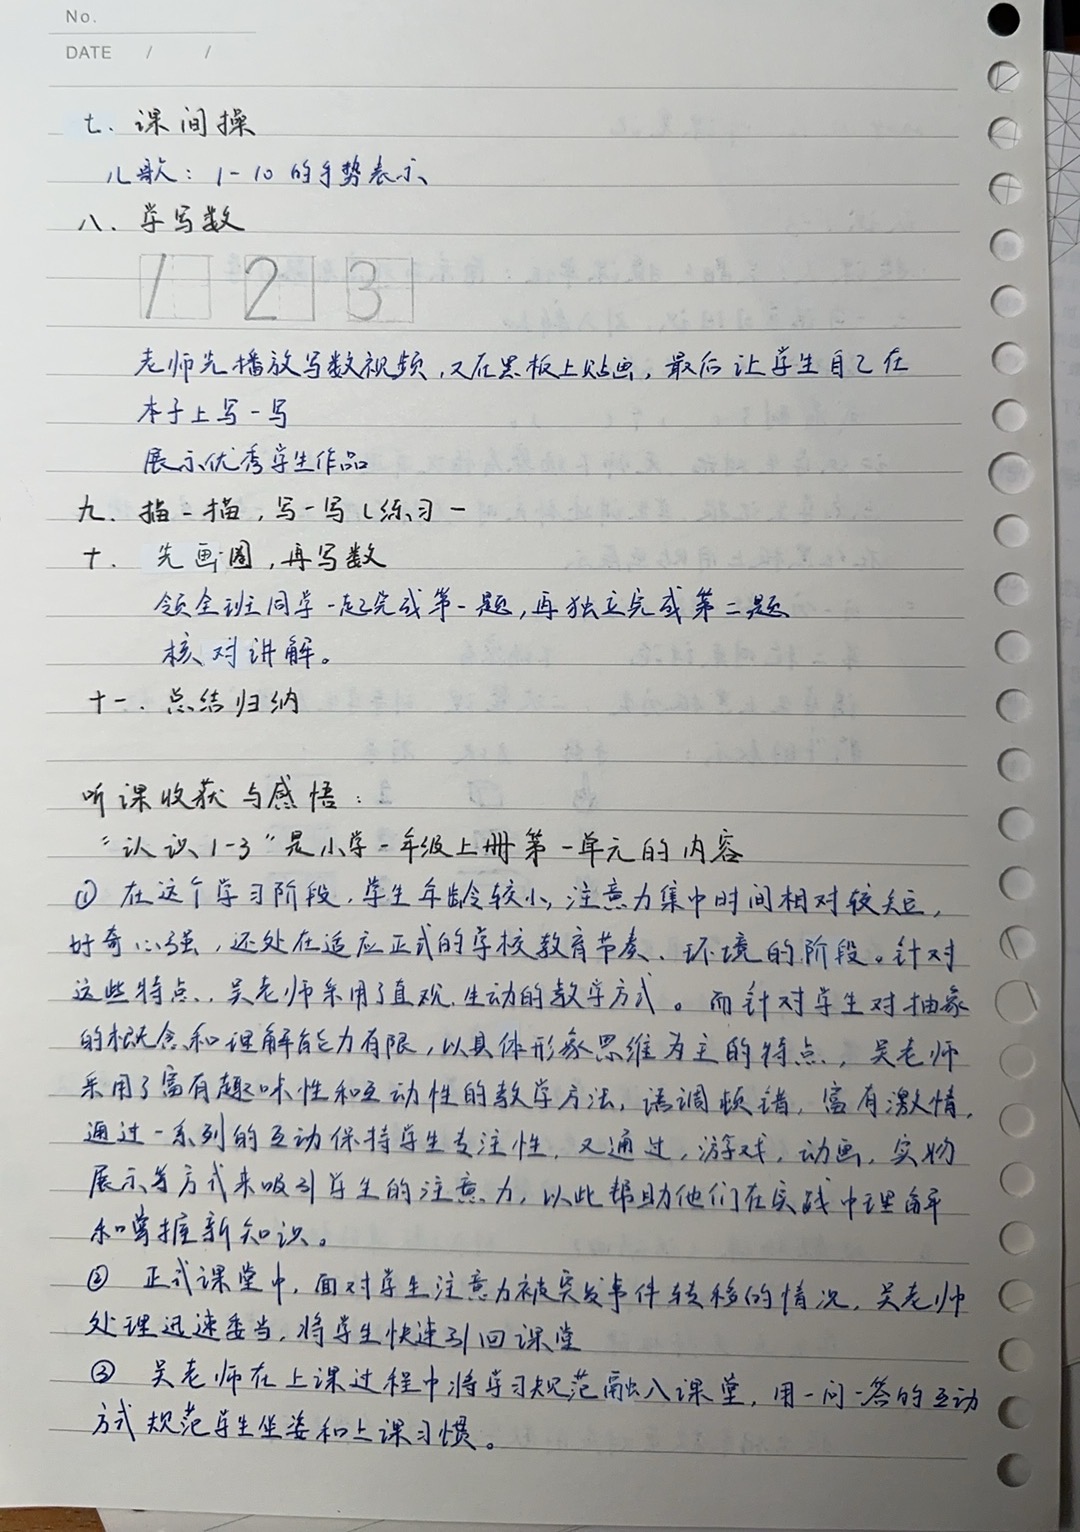 No.
DATE / /
七. 课间操
儿歌: 1-10 的手势表示
八. 学写数
1 2 3
老师先播放写数视频,又在黑板上贴画,最后让学生自己在
本子上写一写
展示优秀学生作品
九. 描一描,写一写(练习一
十. 先画圈,再写数
领全班同学一起完成第一题,再独立完成第二题
核对讲解。
十一. 总结归纳
听课收获与感悟:
“认识1-3”是小学一年级上册第一单元的内容
① 在这个学习阶段,学生年龄较小,注意力集中时间相对较短,
好奇心强,还处在适应正式的学校教育节奏、环境的阶段。针对
这些特点,吴老师采用了直观.生动的教学方式。而针对学生对抽象
的概念和理解能力有限,以具体形象思维为主的特点,吴老师
采用了富有趣味性和互动性的教学方法,语调顿错,富有激情,
通过一系列的互动保持学生专注性,又通过,游戏,动画,实物
展示等方式来吸引学生的注意力,以此帮助他们在实践中理解
和掌握新知识。
② 正式课堂中,面对学生注意力被突发事件转移的情况,吴老师
处理迅速妥当,将学生快速引回课堂
③ 吴老师在上课过程中将学习规范融入课堂,用一问一答的互动
方式规范学生坐姿和上课习惯。